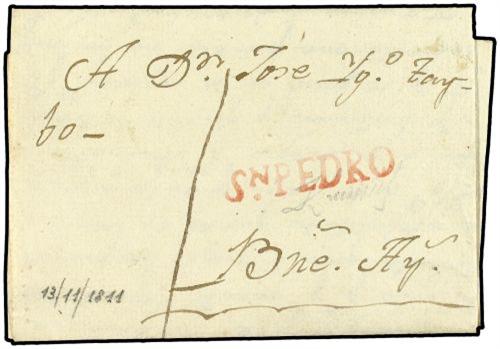 A Dn. José Ygo. Tay-
bo-
SN PEDRO
Bne. Ay.
13/11/1811